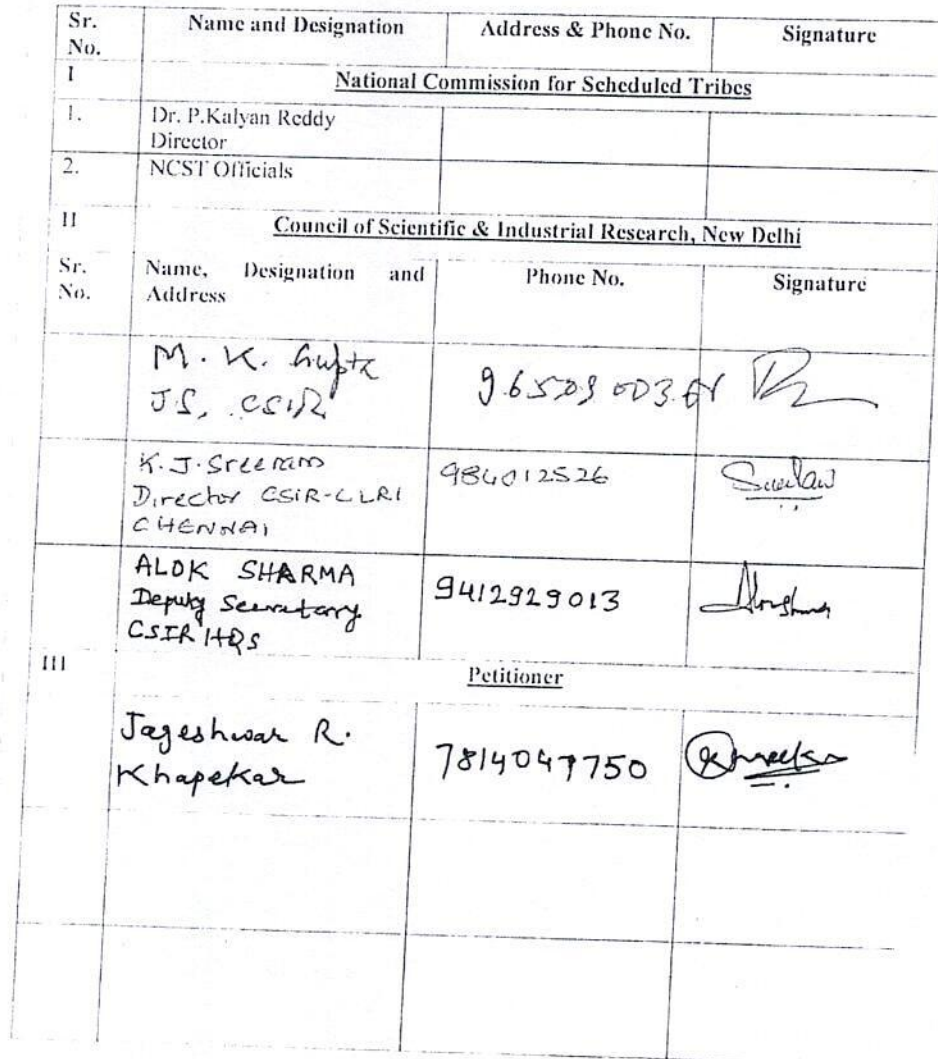 Sr. No. Name and Designation Address & Phone No. Signature
I National Commission for Scheduled Tribes
1. Dr. P.Kalyan Reddy
Director
2. NCST Officials
II Council of Scientific & Industrial Research, New Delhi
Sr. No. Name, Designation and Address Phone No. Signature
M. K. Gupta
J.S, CSIR
K. J. Sreeram 984012526
Director CSIR-CLRI
CHENNAI
ALOK SHARMA 9412929013
Deputy Secretary
CSIR HQS
III Petitioner
Jageshwar R.
Khapekar 7814047750